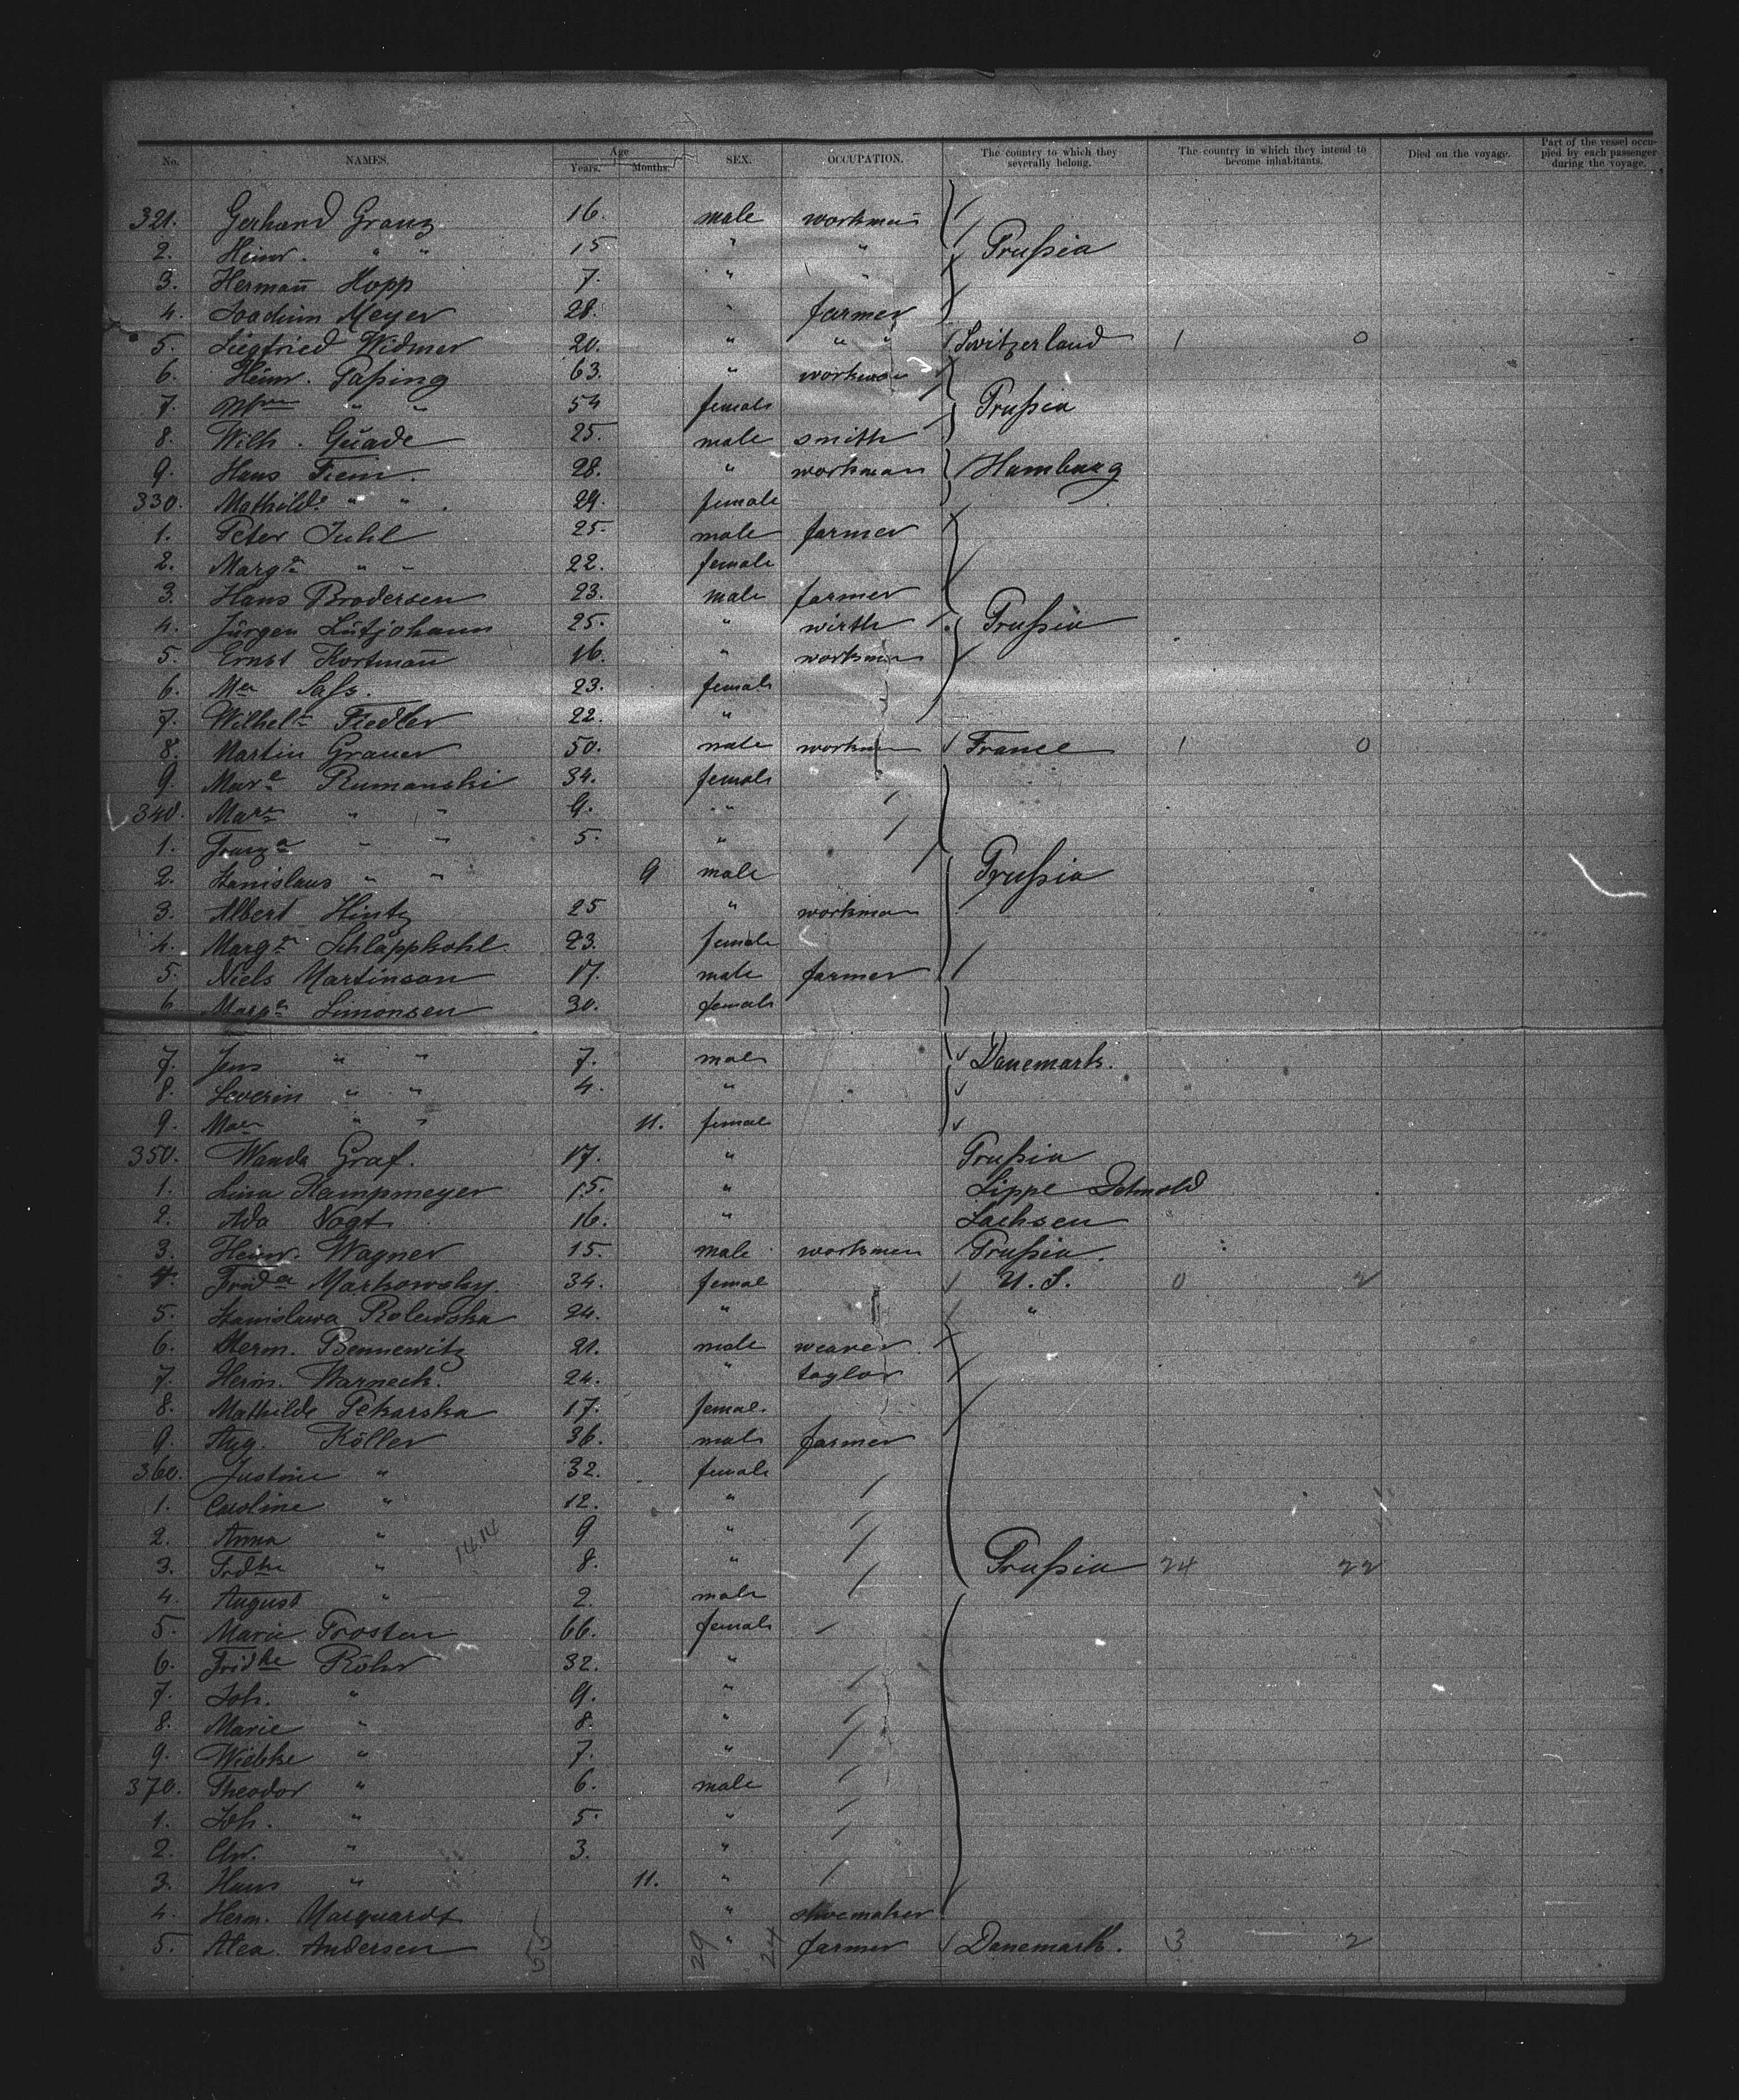 No. NAMES. Age Years. Months. SEX. OCCUPATION. The country to which they severally belong. The country in which they intend to become inhabitants. Died on the voyage. Part of the vessel occupied by each passenger during the voyage.
321. Gerhard Granz 16. male workman
2. Heinr. " " 15 " " Prußia
3. Hermañ Hopp 7. "
4. Joachim Meyer 28. " farmer
5. Siegfried Widmer 20. " " " Switzerland 1 0
6. Heinr. Paßing 63. " workman
7. " " 54 female Prußia
8. Wilh. Guade 25. male smith
9. Hans Tiem. 28. " workman Hamburg
330. Mathilde " " 29. female
1. Peter Juhl 25. male farmer
2. Marg.a " " 22. female
3. Hans Brodersen 23. male farmer
4. Jürgen Lütjohann 25. " wirth Prußia
5. Ernst Kortmañ 16. " workman
6. Safs. 23. female
7. Wilhel. Fiedler 22. "
8. Martin Grauer 50. male workman France 1 0
9. Mar.a Rumanski 34. female
340. Mar.a " " 9. "
1. Franz.a " " 5. "
2. Stanislaus " " 9 male Prußia
3. Albert Hintz 25 " workman
4. Marg.a Schlappkohl 23. female
5. Niels Martinson 17. male farmer
6 Marg.a Simonsen 30. female
7. Jens " " 7. male Danemark.
8. Severin " " 4. "
9. Mar.a " " 11. female
350. Wanda Graf. 17. " Prußia
1. Lina Kampmeyer 15. " Lippe Detmold
2. Ada Vogt 16. " Sachsen
3. Heinr. Wagner 15. male workman Prußia.
4. Frid.a Markowsky. 34. female U. S. 0 2
5. Stanislawa Rolewska 24. " "
6. Herm. Bennewitz 21. male weaver.
7. Herm. Warneck. 24. " taylor
8. Mathilde Pekarska 17. female.
9. Aug. Köller 36. male farmer
360. Justine " 32. female
1. Caroline " 12. "
2. Anna " 9 "
14.14
3. Frdke " 8. " Prußia 24 22
4. August " 2. male
5. Marie Trosten 66. female
6. Fridke Röhr 32. "
7. Joh. " 9. "
8. Marie " 8. "
9. Wiebke " 7. "
370. Theodor " 6. male
1. Joh. " 5. "
2. Chr. " 3. "
3. Hans " 11. "
4. Herm. Marquardt " shoemaker
5. Alex. Andersen " farmer Danemark. 3 2
55 29 24